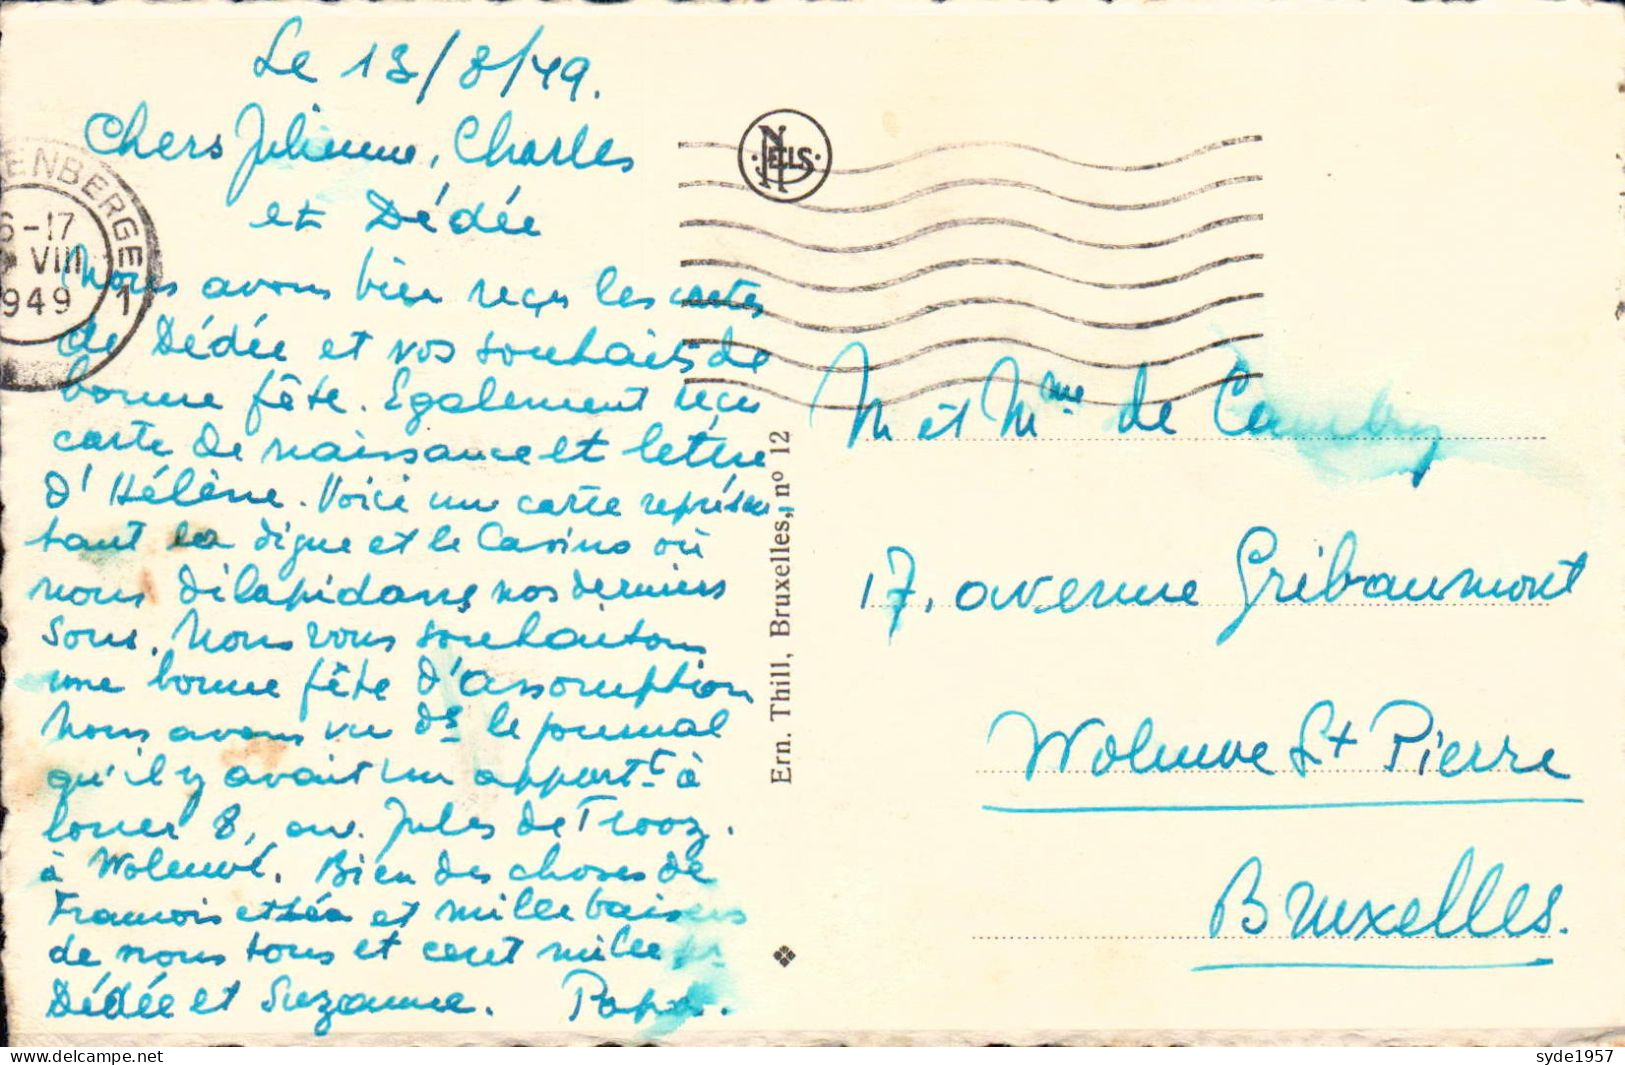 Le 13/8/49.
Chers Julienne, Charles
et Dédée
Nous avons bien reçu les cartes
de Dédée et vos souhaits de
bonne fête. Egalement reçu
carte de naissance et lettre
d'Hélène. Voici un carte représen
tant la digue et le Casino où
nous dilapidons nos derniers
sous. Nous vous souhaitons
une bonne fête d'assomption
Nous avons vu ds le journal
qu'il y avait un appart-t à
louer 8, av. Jules de Trooz.
à Woluwé. Bien des choses de
François et Léa et mille baisers
de nous tous et cent mille pr
Dédée et Suzanne. Papa.
ENBERGE
6-17
VIII
1949
1
NELS
Ern. Thill, Bruxelles, n° 12
M et Mme de
17, avenue Gribaumont
Woluwe St Pierre
Bruxelles.
delcampe.net
syde1957